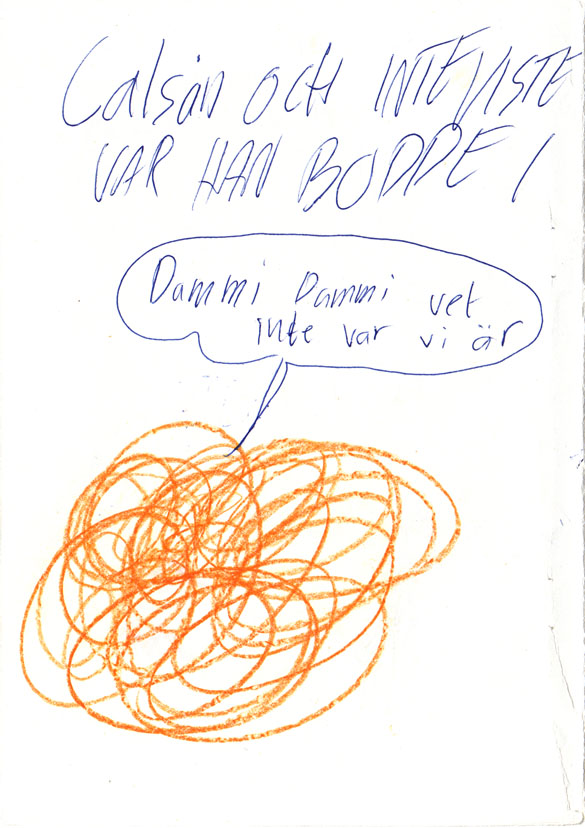 Calsån och INTE VISTE
VAR HAN BODDE!
Dammi Dammi vet
inte var vi är